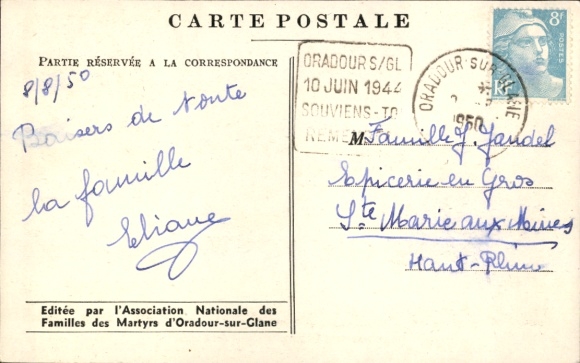 CARTE POSTALE
PARTIE RÉSERVÉE A LA CORRESPONDANCE
8/8/50
Baisers de toute
la famille
Eliane
Editée par l'Association Nationale des
Familles des Martyrs d'Oradour-sur-Glane
ORADOUR S/GL
10 JUIN 1944
SOUVIENS-TO
REME
ORADOUR-SUR-GLANE
1950
8F
POSTES
RF
M Famille J. Jandel
Epicerie en Gros
Ste Marie aux Mines
Haut-Rhin